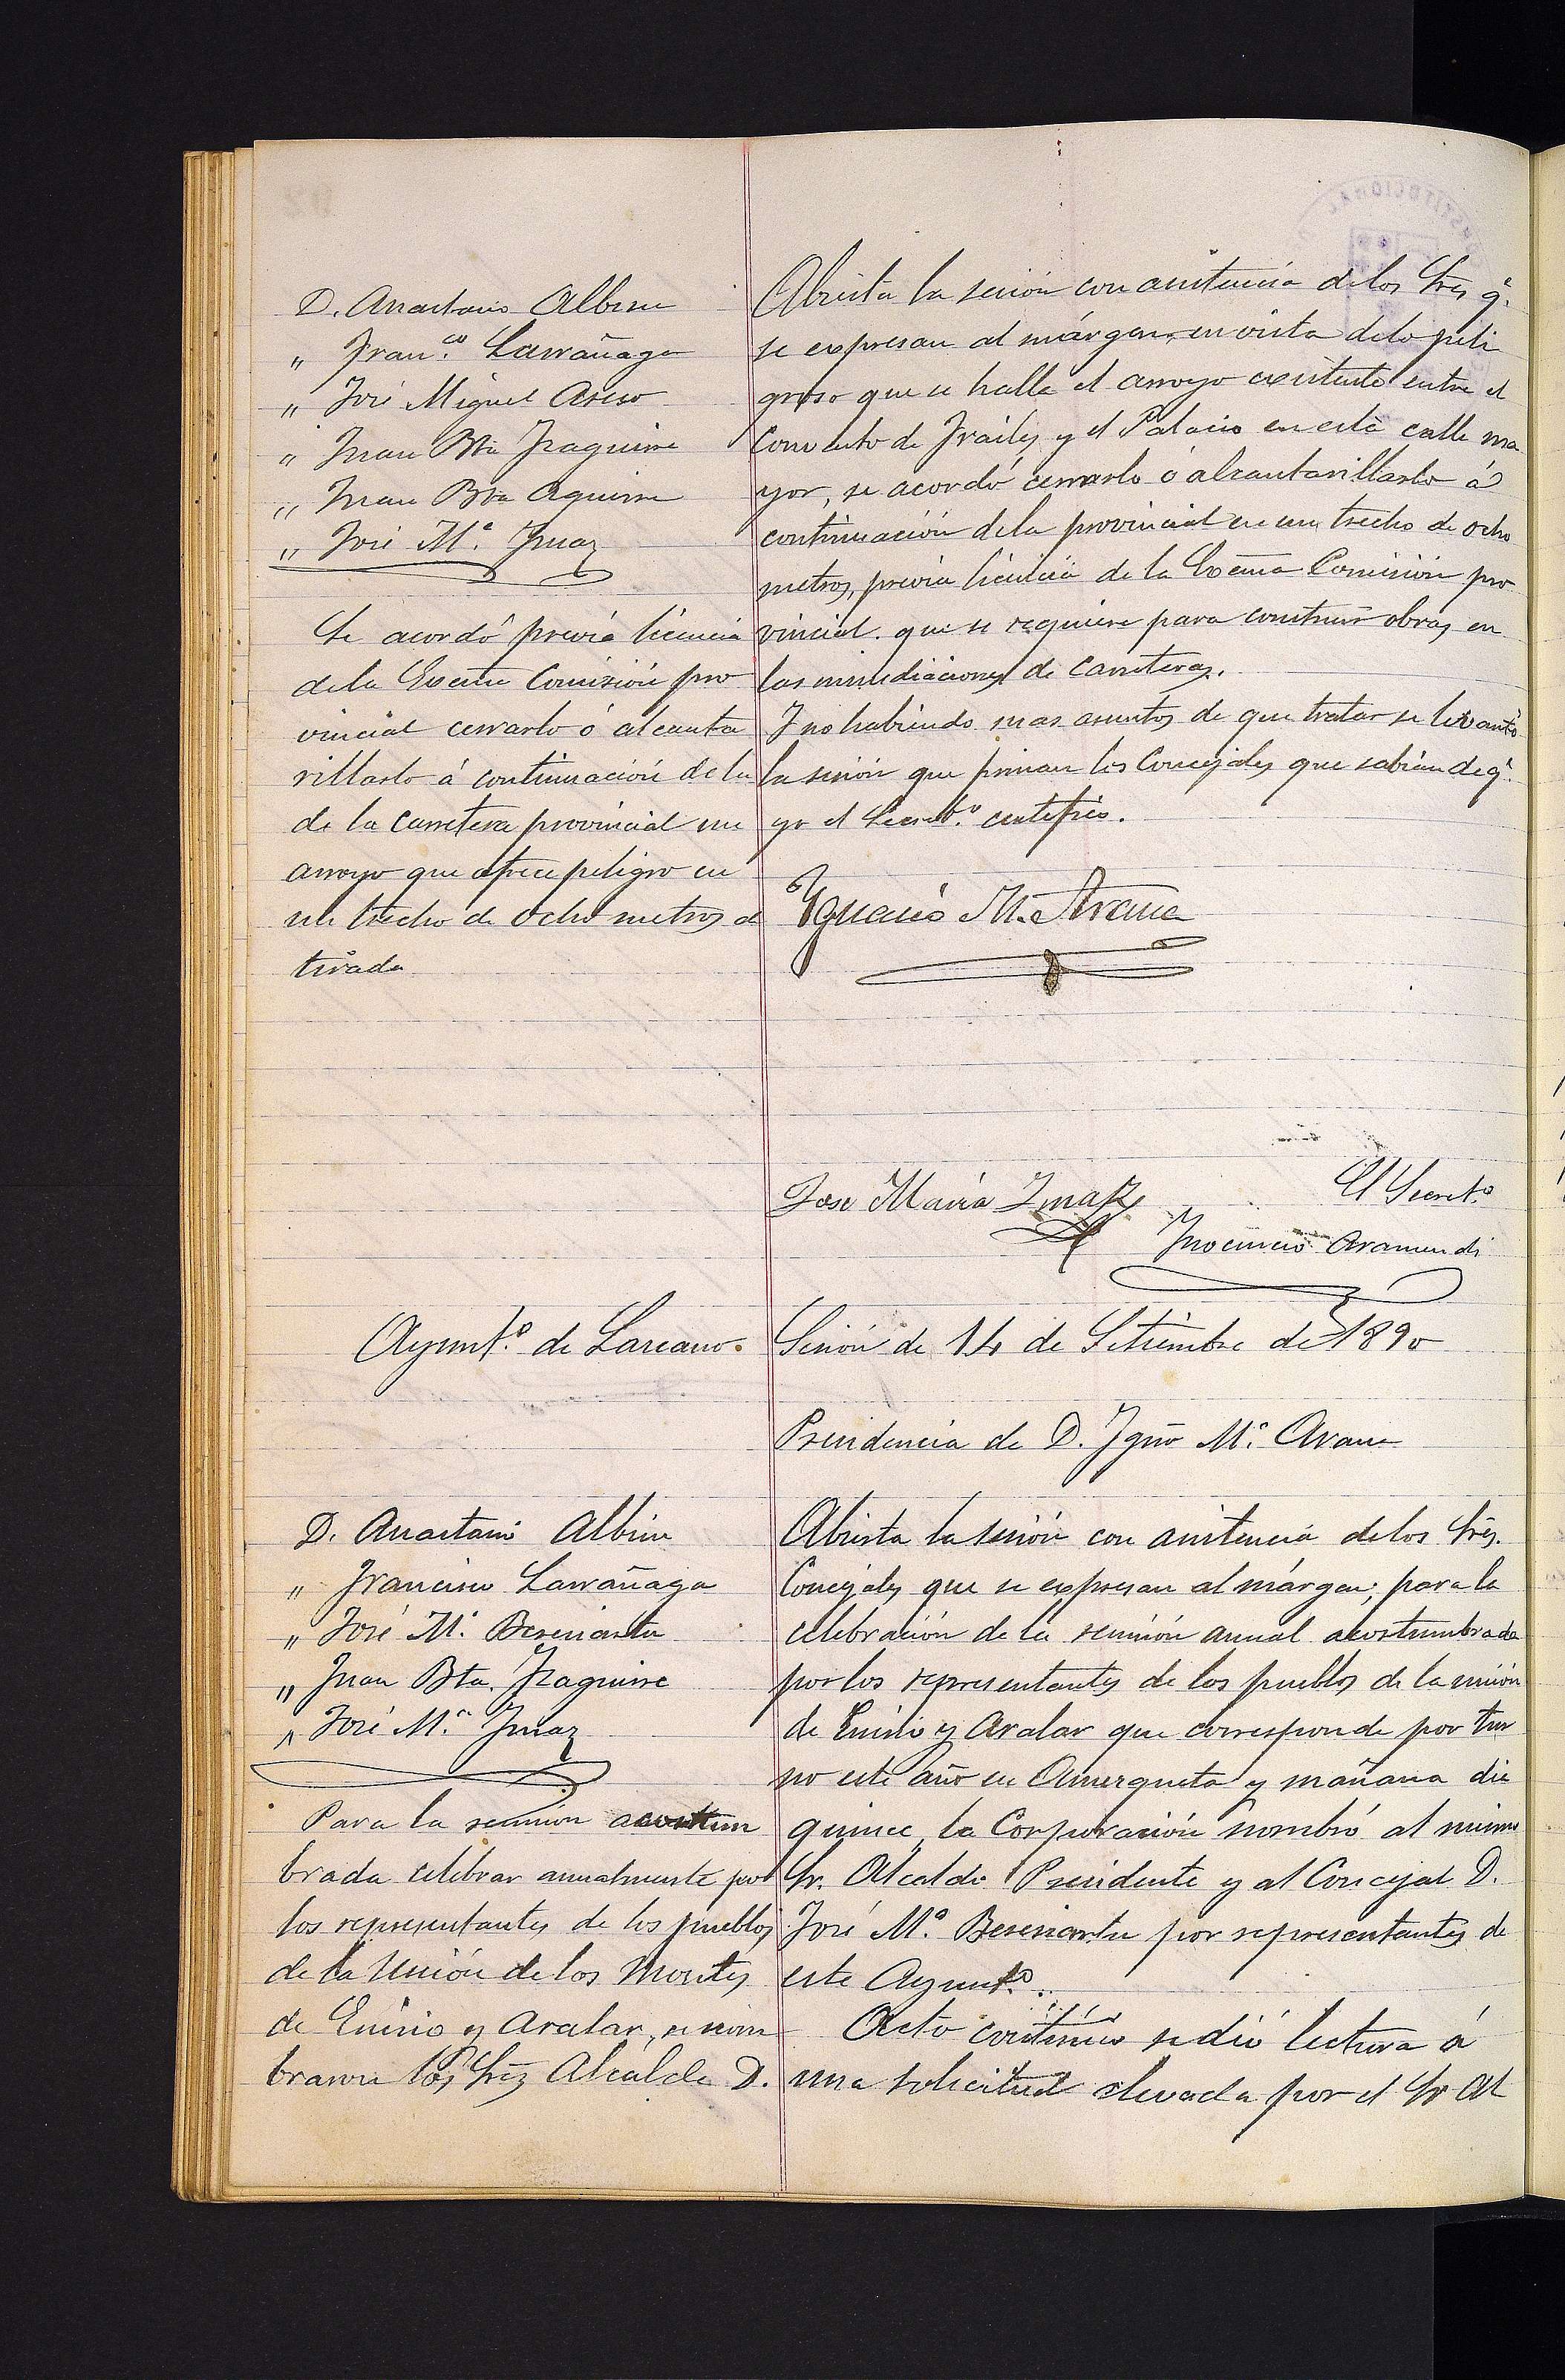 D. Anastasio Albisu
„ Fran.co Larrañaga
„ José Miguel Aseso
„ Juan Bta Izaguirre
„ Juan Bta Aguirre
„ José M.a Imaz
Se acordó previa licencia
de la Excma Comisión pro
vincial cerrarlo ó alcanta
rillarlo á continuación de la
de la carretera provincial un
arroyo que ofrece peligro en
un trecho de ocho metros de
tirada
Abierta la sesión con asistencia de los Sres q.e
se expresan al márgen, en vista de lo peli
groso que se halla el arroyo existente entre el
Convento de Frailes y el Palacio en esta calle ma
yor, se acordó cerrarlo ó alcantarillarlo á
continuación de la provincial en un trecho de ocho
metros, previa licencia de la Excma Comisión pro
vincial. que se requiere para construir obras en
las inmediaciones de carreteras.
Y no habiendo mas asuntos de que tratar se levantó
la sesión que firman los Concejales que sabían de q.e
yo el Secret.o certifico.
Ygnacio M. Arana
Jose Maria Imaz
El Secret.o
Inocencio Aramendi
Ayunt.o de Lazcano.
Sesión de 14 de Setiembre de 1890
Presidencia de D. Ignº M.a Arana
D. Anastasio Albisu
„ Francisco Larrañaga
„ José M.a Beresiartu
„ Juan Bta. Izaguirre
„ José M.a Imaz
Para la reunion acostum
brada celebrar anualmente por
los representantes de los pueblos
de la Unión de los Montes
de Enirio y Aralar, se nom
braron los Sres Alcalde D.
Abierta la sesión con asistencia de los Sres.
Concejales que se expresan al márgen; para la
celebración de la reunión anual acostumbrada
por los representantes de los pueblos de la unión
de Enirio y Aralar que corresponde por tur
no este año en Amezqueta y mañana dia
quince, la Corporación nombró al mismo
Sr. Alcalde Presidente y al Concejal D.
José M.a Beresiartu por representantes de
este Ayunt.o.
Acto contínuo se dió lectura á
una solicitud elevada por el Sr Al